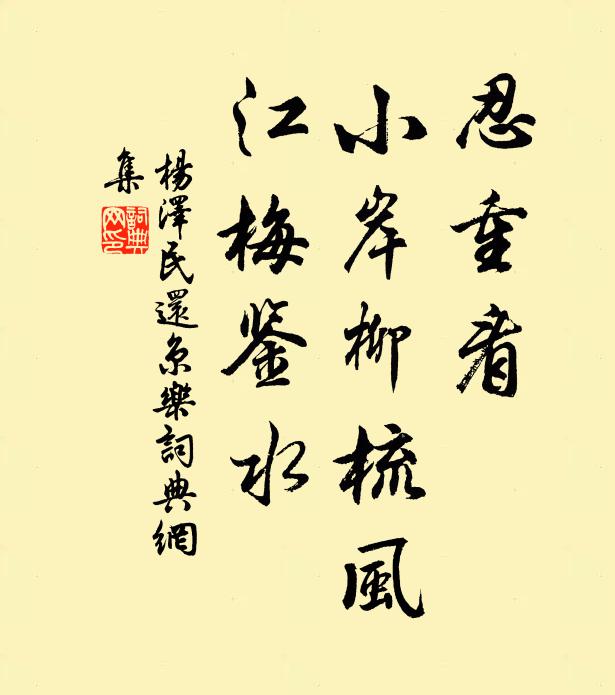 忍重看
小岸柳梳風
江梅鉴水
楊澤民還京樂詞典網
集
詞典
网印